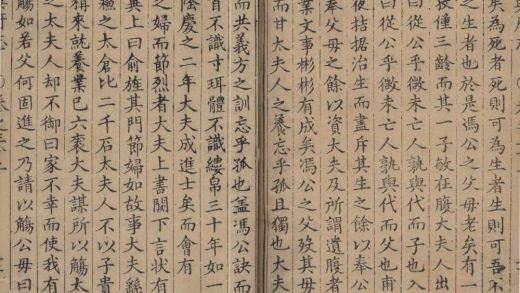 矣為死者死則可為生者生則可吾不
之生者也於是馮公之父母老矣有一
僅三齡而其一子敏在腹大夫人出
曰從公乎微未亡人孰與代而子也入
曰從公乎微未亡人孰與代而父也甫
夜拮据治生而盡斥其生之餘以奉公
奉父母之餘以資大夫及所謂遺腹者
業文事彬彬有成矣馮公之父歿其母
而甘太夫人之養忘乎孤且獨也大夫
而共義方之訓忘乎孤也盖馮公訣而
首不識寸珥體不識縷帛三十年如一
隆慶之二年大夫成進士矣而會有
之婦而節烈者大夫上書闕下言狀有
其上曰俞旌其門節婦如故事大夫繇
極之太倉比二千石太夫人不以子貴
稍來就養業已六袠大夫謀所以觴太
太夫人却不御曰家不幸而使我有
觴如若父何固進之乃請以觴公母曰